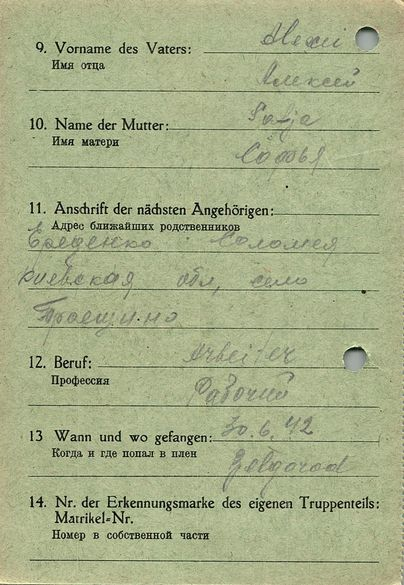 9. Vorname des Vaters: Alexei
Имя отца Алексей
10. Name der Mutter: Sofja
Имя матери Софья
11. Anschrift der nächsten Angehörigen:
Адрес ближайших родственников
Ереденко Саломея
Киевская обл, село
Троещино
12. Beruf: Arbeiter
Профессия Рабочий
13 Wann und wo gefangen: 30.6.42
Когда и где попал в плен Belgorod
14. Nr. der Erkennungsmarke des eigenen Truppenteils:
Matrikel-Nr.
Номер в собственной части